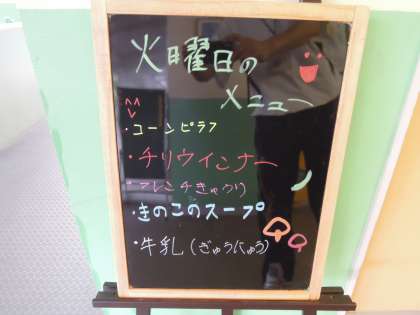 火曜日の
メニュー
・コーンピラフ
・チリウインナー
・フレンチきゅうり
・きのこのスープ
・牛乳(ぎゅうにゅう)